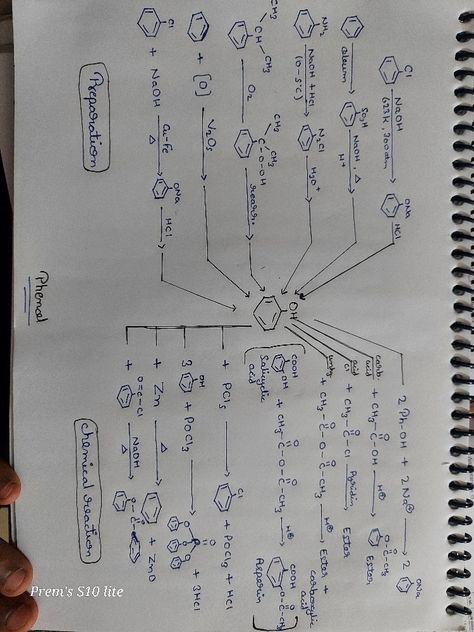 Preparation
Cl
NaOH
623K, 300atm
ONa
HCl
oleum
SO₃H
NaOH, Δ
H⁺
NH₂
NaOH + HCl
(0-5°C)
N₂Cl
H₂O⁺
CH₃
CH
CH₃
O₂
CH₃
C-O-OH
CH₃
+ [O]
V₂O₅
Cl
+ NaOH
Cu-Fe
Δ
ONa
HCl
OH
Phenol
chemical reaction
2 Ph-OH + 2 Na
2
ONa
+ CH₃-C-OH
O
H⊕
O-C-CH₃
Ester
acid
+ CH₃-C-Cl
O
Pyridin
Ester
+ CH₃-C-O-C-CH₃
O
O
H⊕
Ester +
carboxylic
acid
COOH
OH
Salicylic
acid
+ CH₃-C-O-C-CH₃
O
O
H⊕
COOH
O-C-CH₃
O
Asperin
+ PCl₅
Cl
+ POCl₃ + HCl
3
OH
+ POCl₃
+ 3HCl
+ Zn
Δ
+ ZnO
+
O=C-Cl
NaOH
Δ
Prem's S10 lite